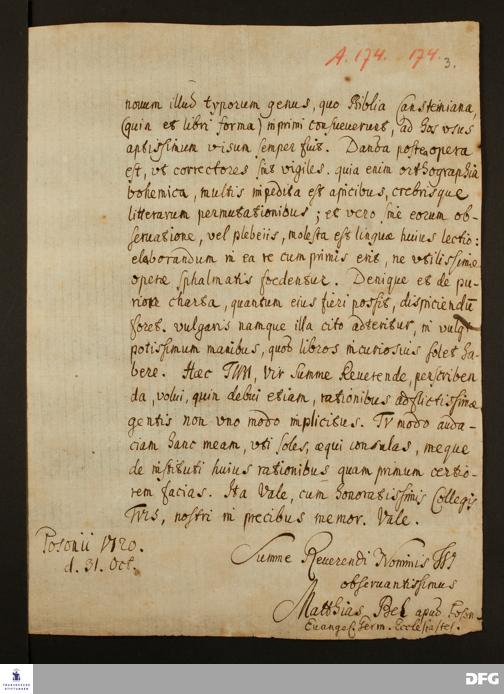 A. 174. 174. 3.
novum illud typorum genus, quo Biblia Cansteiniana,
(quin et libri forma) inprimi consueverunt, ad hos vsus
aptissimum visum semper fuit. Danda postea opera
est, vt correctores sint vigiles. quia enim orthographia
bohemica, multis inpedita est apicibus, crebrisque
litterarum permutationibus; et vero sine eorum ob-
servatione, vel plebeiis, molesta est linguae huius lectio:
elaborandum in ea re cum primis erit, ne vtilissimae
operae sphalmatis foedentur. Denique et de pu-
riori charta, quantum eius fieri possit, dispiciendū
foret. vulgaris namque illa cito adteritur, in vulgi
potissimum manibus, quod libros incuriosius solet ha-
bere. Haec TIBI, Vir Summe Reverende, perscriben
da, volui, quin debui etiam, rationibus adflictissimae
gentis non vno modo inplicitus. TV modo auda-
ciam hanc meam, vti soles, aequi consulas, meque
de instituti huius rationibus quam primum certio-
rem facias. Ita Vale, cum honoratissimis Collegis
TVIS, nostri in precibus memor. Vale.
Posonii 1720.
d. 31. Oct.
Summe Reverendi Nominis TVI
observantissimus
Matthias Bel apud Poson.
Evangel. Germ. Ecclesiastes.
FRANCKESCHE
STIFTUNGEN
DFG